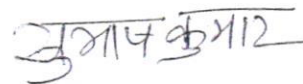 सुभाष कुमार